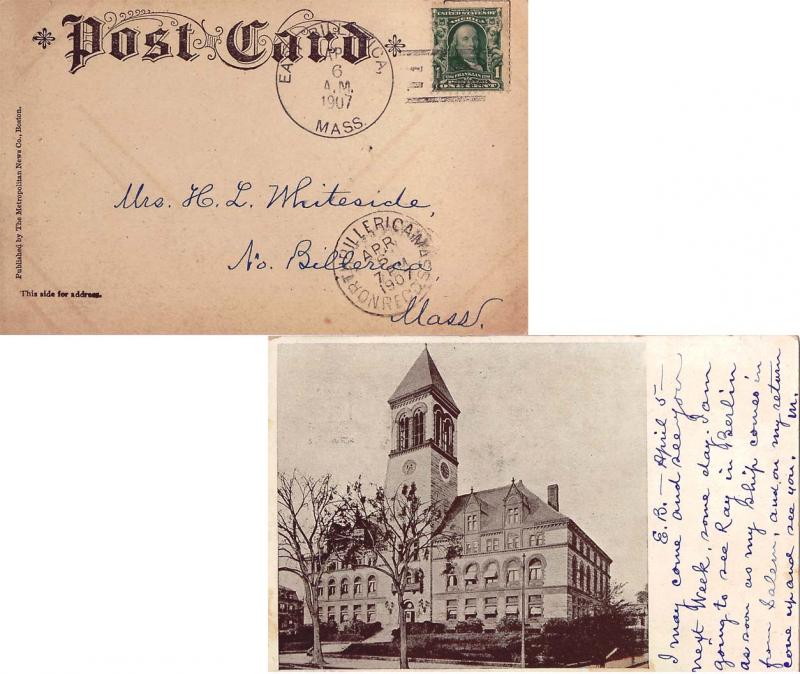 Post Card
6
A.M.
1907
MASS.
UNITED STATES OF AMERICA
ONE CENT
1
1
Published by The Metropolitan News Co., Boston.
Mrs. H. L. Whiteside,
No. Billerica,
Mass.
NORTH BILLERICA, MASS.
APR
1907
REC'D
This side for address.
E. B. — April 5 —
I may come and see you
next Week, some day. I am
going to see Ray in Berlin
as soon as my ship comes in
from Salem, and on my return
come up and see you. M.